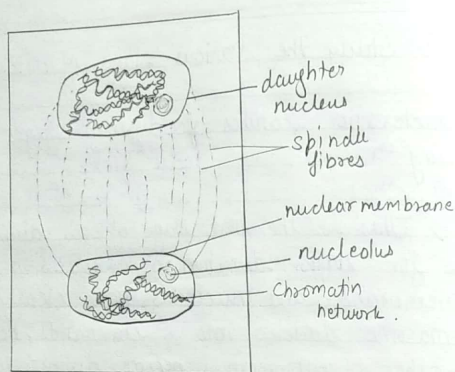 daughter
nucleus
spindle
fibres
nuclear membrane
nucleolus
chromatin
network.